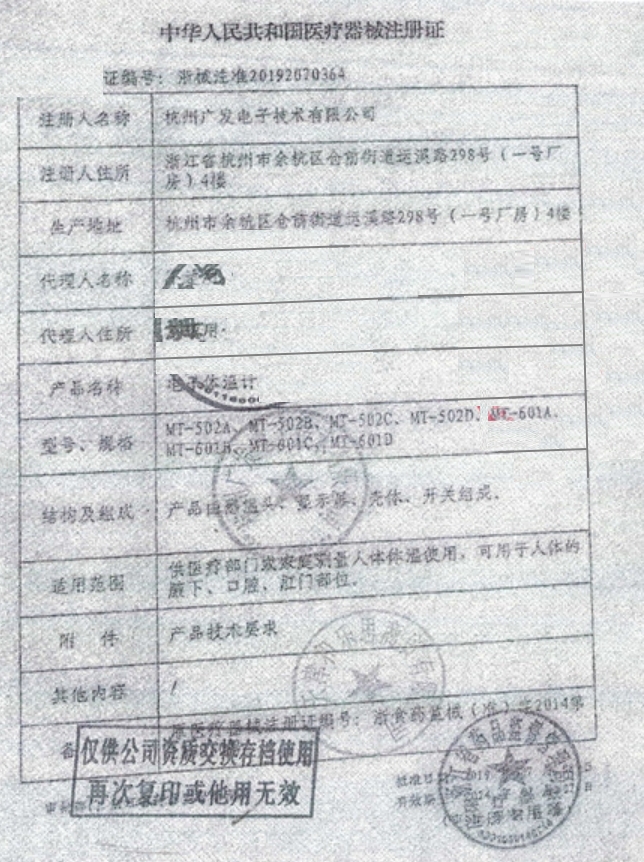 中华人民共和国医疗器械注册证
证编号：浙械注准20192070364
注册人名称
杭州广发电子技术有限公司
注册人住所
浙江省杭州市余杭区仓前街道运溪路298号（一号厂
房）4楼
生产地址
杭州市余杭区仓前街道运溪路298号（一号厂房）4楼
代理人名称
代理人住所
用
产品名称
电子体温计
型号、规格
MT-502A、MT-502B、MT-502C、MT-502D、MT-601A、
MT-601B、MT-601C、MT-601D
结构及组成
产品由感温头、显示器、壳体、开关组成。
适用范围
供医疗部门或家庭测量人体体温使用，可用于人体的
腋下、口腔、肛门部位。
附 件
产品技术要求
其他内容
/
原医疗器械注册证编号：浙食药监械（准）字2014第
备
仅供公司资质交换存档使用
再次复印或他用无效
批准日
有效